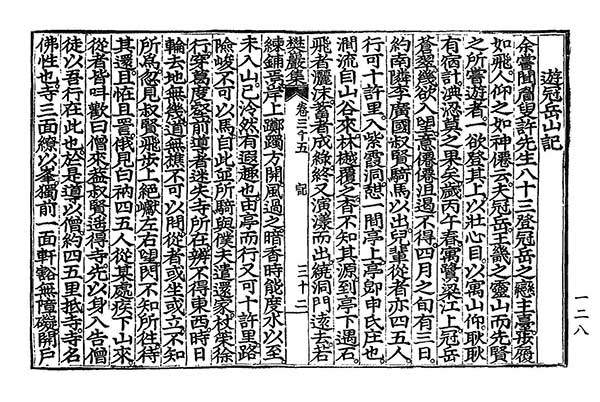 遊冠岳山記
余嘗聞眉叟許先生八十三登冠岳之戀主臺步履
如飛人仰之如神僊云夫冠岳王畿之靈山而先賢
之所嘗遊者一欲登其上以壯心目以寓山仰耿耿
有宿計洟忍莫之果矣歲丙午春寓鷺梁江上冠岳
蒼翠幾欲入望意僊僊沮遏不得四月之旬有三日
約南隣李廣國叔賢騎馬以出兒輩從者亦四五人
行可十許里入紫霞洞甜一間亭上亭卽申氏庄也
澗流自山谷來林樾覆之杳不知其源到亭下遇石
飛者灑沫蓄者成綠終又演漾而出繞洞門遠去若
樊巖集 卷三十五 記 三十二
練鋪焉岸上躑躅方開風過之暗香時能度水以至
未入山已泠然有遐趣也由亭而行又可十許里路
險峻不可以馬自此並所騎與僕夫遣還家杖策徐
行穿葛度壑前導者迷失寺所在辨不得東西時日
輪去地無幾道無樵不可以問從者或坐或立不知
所爲忽見叔賢飛步上絶巘左右望閃不知所徃待
其還且怪且詈俄見白衲四五人從某處疾下山來
從者皆叫歡曰僧來蓋叔賢遙得寺先以身入告僧
徒以吾行在此也於是道以僧約四五里抵寺寺名
佛性也寺三面繚以峯獨前一面軒豁無障礙開戶
一二八